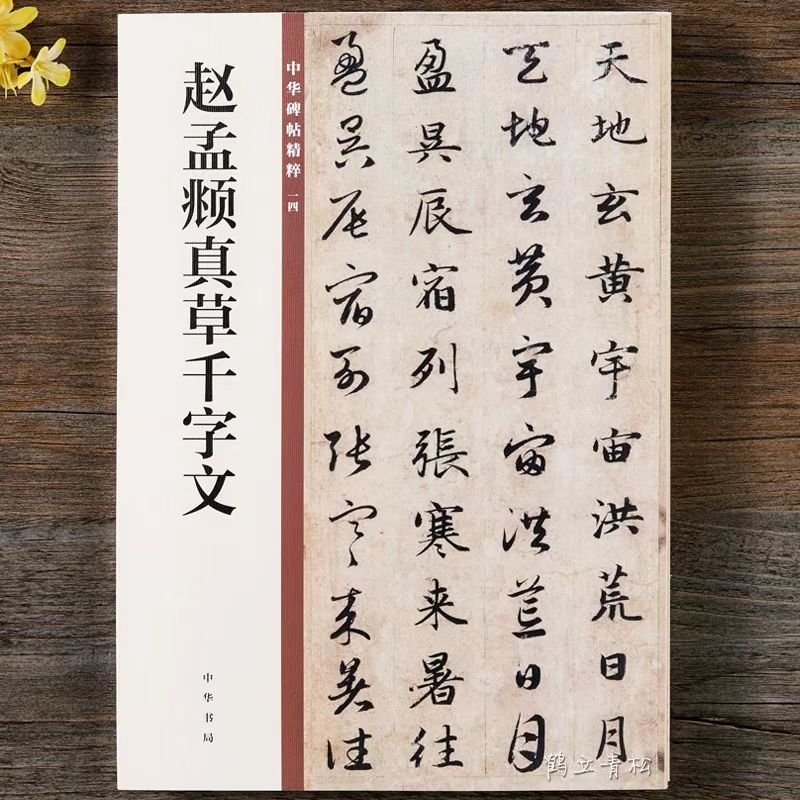 赵孟𫖯真草千字文
中华碑帖精粹 一四
中华书局
天地玄黄宇宙洪荒日月
天地玄黄宇宙洪荒日月
盈昃辰宿列張寒来暑往
盈昃辰宿列張寒来暑往
鹤立青松